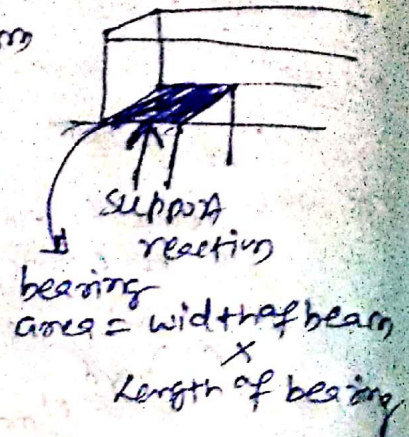 support
reaction
bearing
area = width of beam
×
Length of bearing